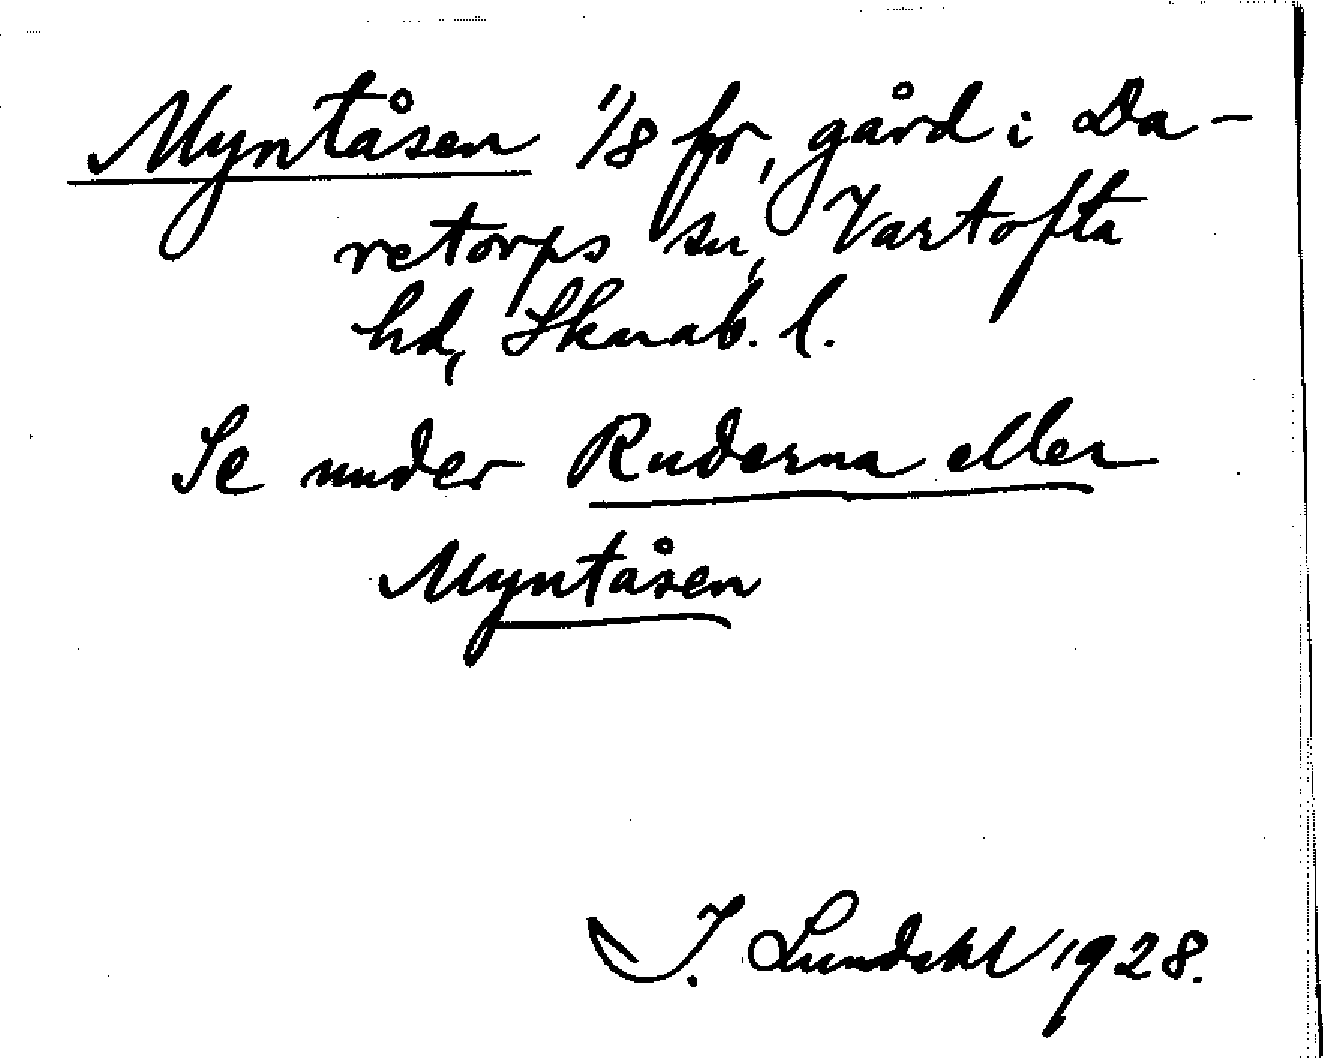 Myntåsen 1/8 fr, gård i Da-
retorps sn, Vartofta
hd, Skarab. l.
Se under Ruderna eller
Myntåsen
I. Lundahl 1928.